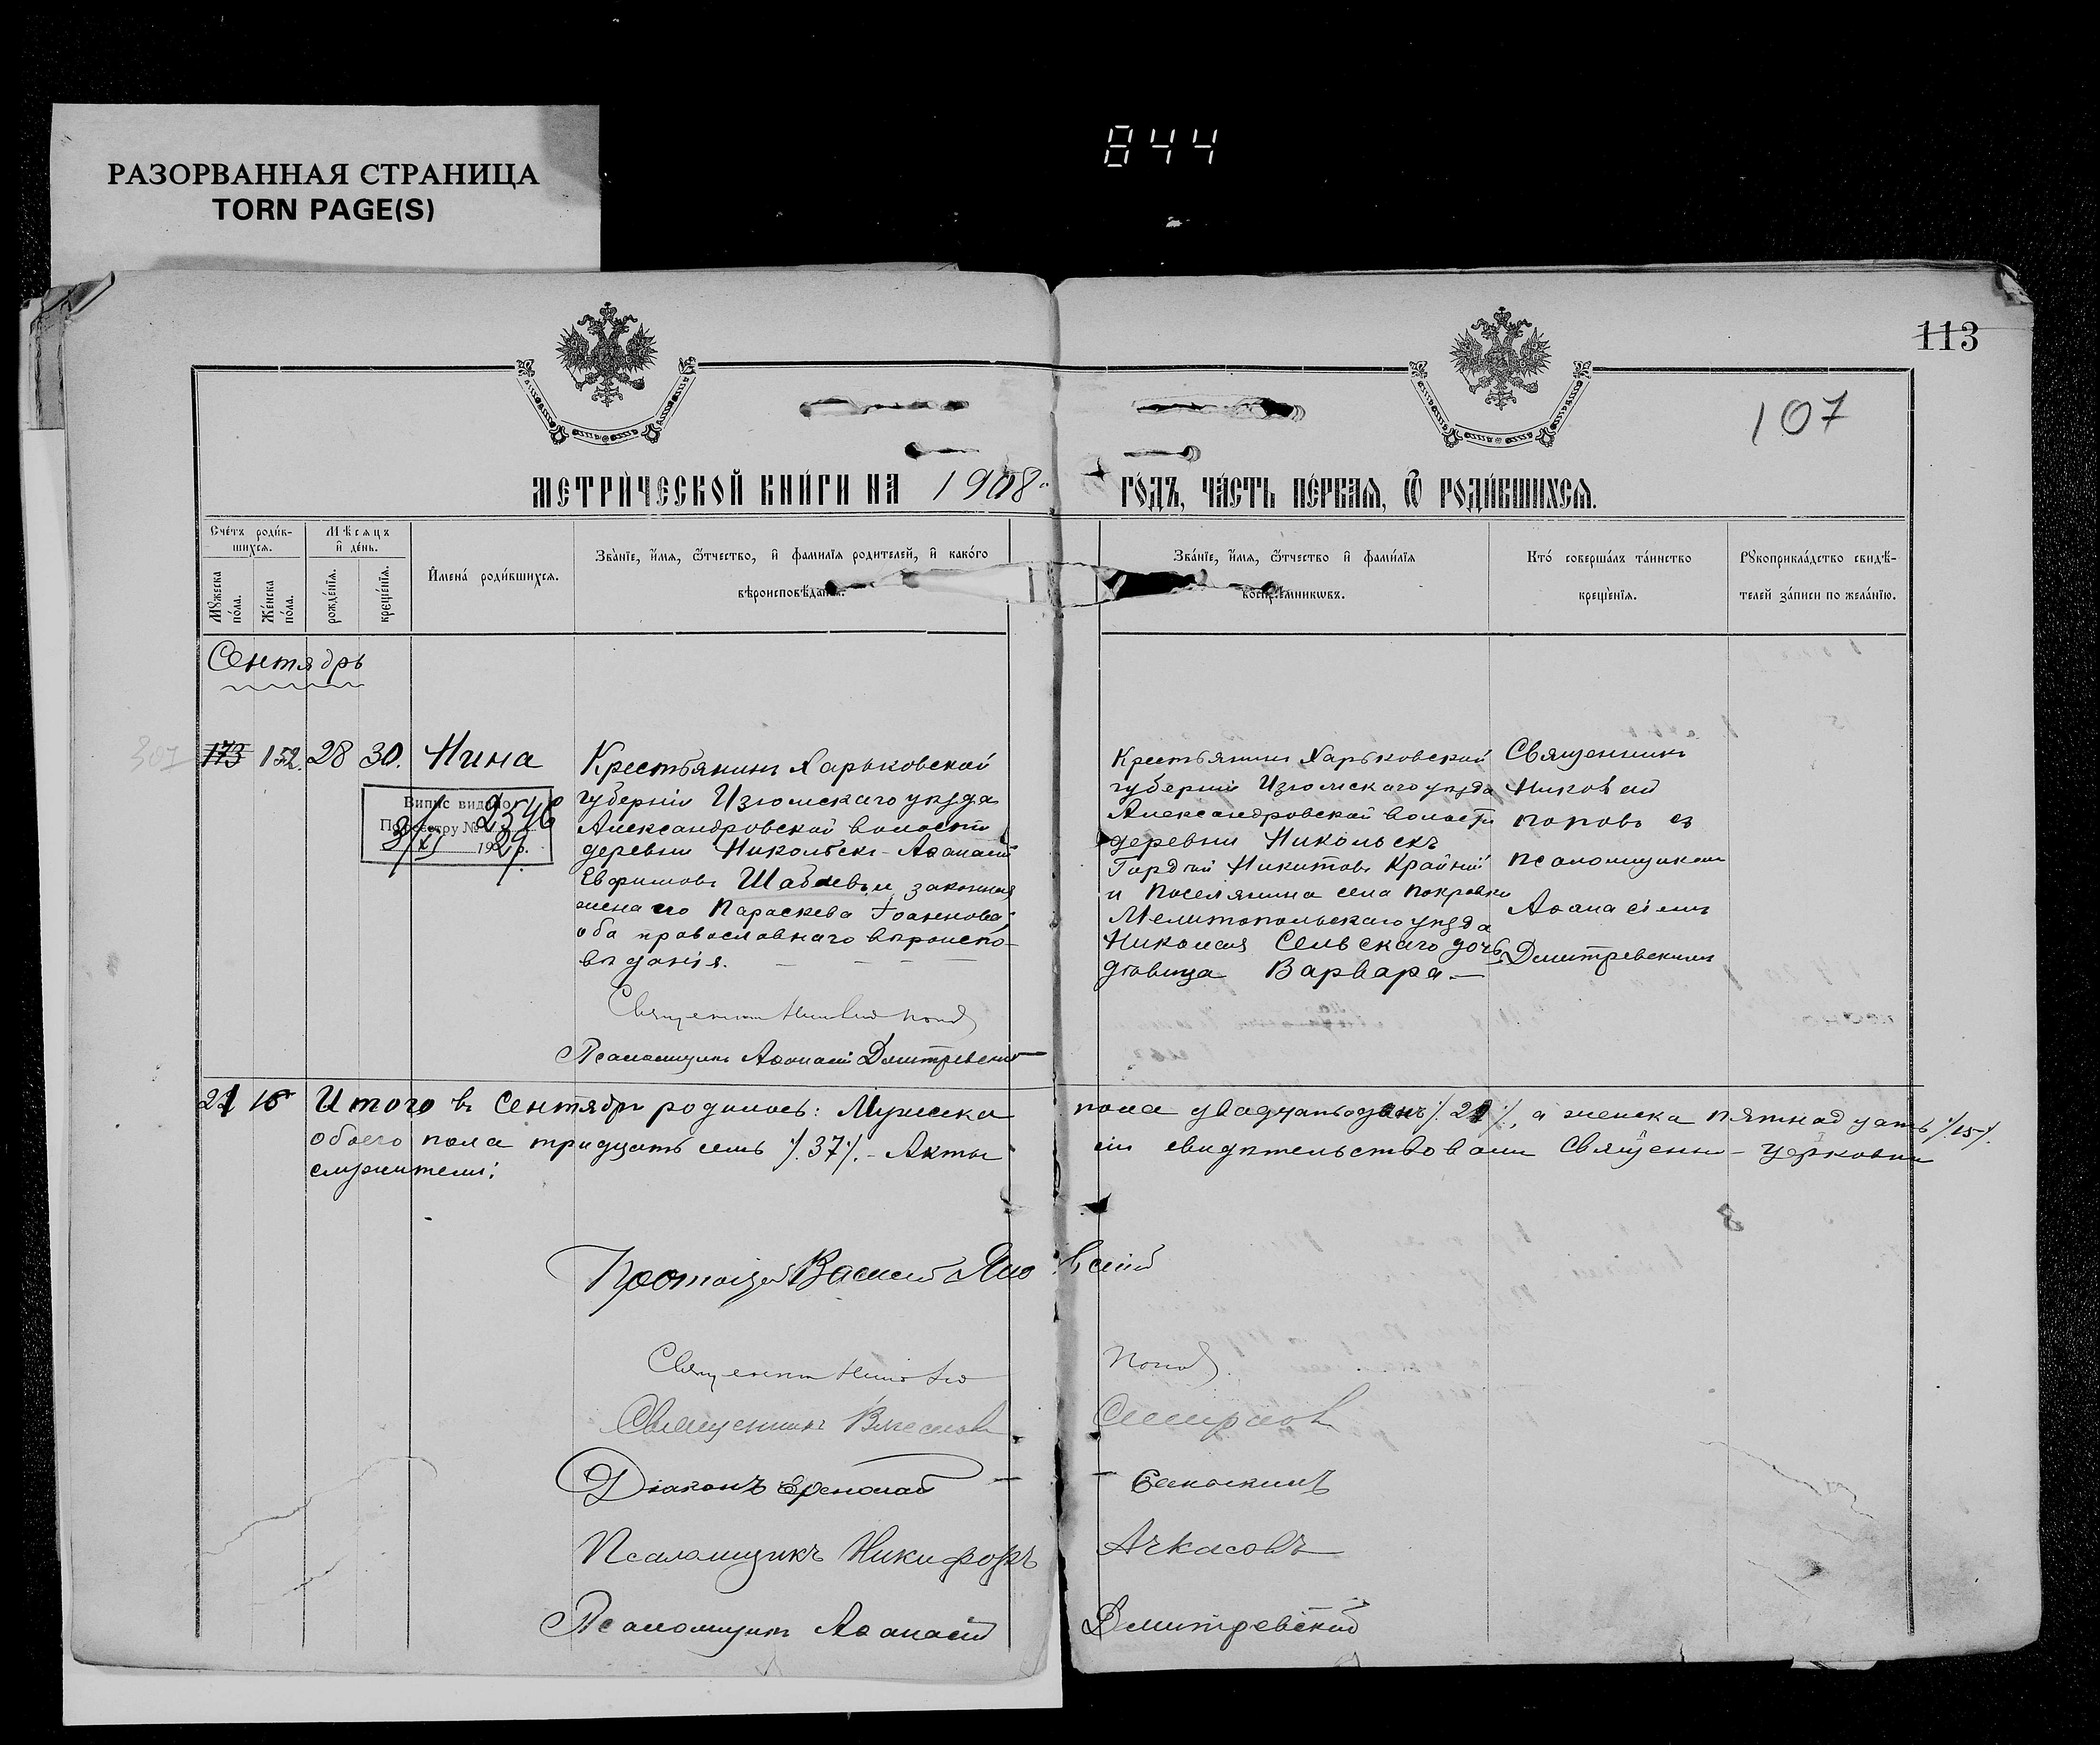 РАЗОРВАННАЯ СТРАНИЦА
TORN PAGE(S)
844
113
107
МЕТРИЧЕСКОЙ КНИГИ НА 1908
ГОДЪ, ЧАСТЬ ПЕРВАЯ, Ѿ РОДИВШИХСЯ.
Счетъ родив-
шихся.
Мѣсяцъ
и день.
Мꙋжеска пола.
Женска пола.
рожденїя.
крещенїя.
Имена родившихся.
Званїе, имя, ѿтчество, и фамилїя родителей, и какого
вѣроисповѣданїя.
Званїе, имя, ѿтчество и фамилїя
воспрїемникѡвъ.
Кто совершалъ таинство
крещенїя.
Рꙋкоприкладство свидѣ-
телей записи по желанїю.
Сентябрь
173 152. 28 30. Нина
Випис видано
По реєстру № 2546
3/XI 1927 р.
Крестьянинъ Харьковской
губерніи Изюмскаго уѣзда
Александровской волости
деревни Никольскъ Аѳанасій
Евфимовъ Шабаевъ и законная
жена его Параскева Іоаннова;
оба православнаго вѣроиспо-
вѣданія.
Священникъ Николай Попов
Псаломщикъ Аѳанасій Дмитревскій
Крестьянинъ Харьковской
губерніи Изюмскаго уѣзда
Александровской волости
деревни Никольскъ
Гордій Никитовъ Крайній
и поселянина села Покровки
Мелитопольскаго уѣзда
Николая Сельскаго дочь
дѣвица Варвара.
Священникъ
Николай
Поповъ съ
псаломщикомъ
Аѳанасіемъ
Дмитревскимъ
21 15 Итого въ Сентябрѣ родилось: Мужеска пола двадцать одинъ /.21/., а женска пятнадцать /.15/.
обоего пола тридцать семь /.37/. - Акты сіи свидѣтельствовали Священно-церковно
служители:
Протоіерей Василій
Священникъ Николай Попов
Священникъ Смирнов
Діаконъ
Псаломщикъ Никифоръ Ачкасовъ
Псаломщикъ Аѳанасій Дмитревскій